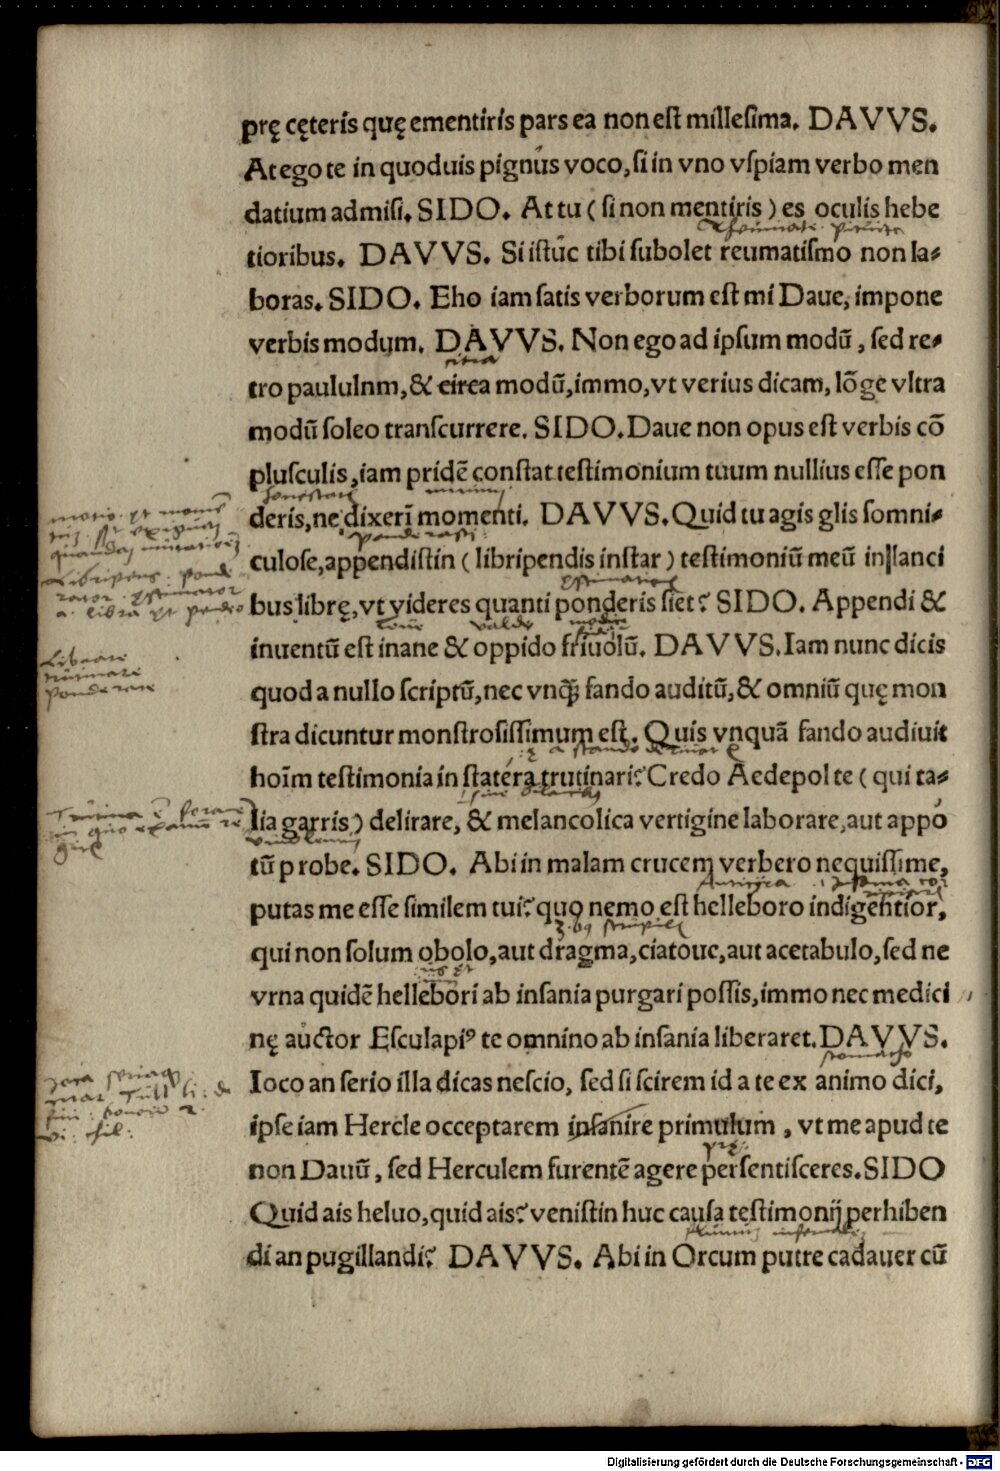 prę cęteris quę ementiris pars ea non est millesima. DAVVS.
At ego te in quoduis pignús voco, si in vno vspiam verbo men
datium admisi. SIDO. At tu ( si non mentiris ) es oculis hebe
tioribus. DAVVS. Si istúc tibi subolet reumatismo non la-
boras. SIDO. Eho iam satis verborum est mi Daue, impone
verbis modum. DAVVS. Non ego ad ipsum modū, sed re-
citra
tro paululnm, & circa modū, immo, vt verius dicam, lōge vltra
modū soleo transcurrere. SIDO. Daue non opus est verbis cō
plusculis, iam pridē constat testimonium tuum nullius esse pon
deris, ne dixerī momenti. DAVVS. Quid tu agis glis somni-
ponderasti
culose, appendistin ( libripendis instar ) testimoniū meū in lanci
bus librę, vt videres quanti ponderis siet? SIDO. Appendi &
valde
inuentū est inane & oppido friuolū. DAVVS. Iam nunc dicis
quod a nullo scriptū, nec vnq̄ fando auditū, & omniū quę mon
stra dicuntur monstrosissimum est. Quis vnquā fando audiuit
hoīm testimonia in statera trutinari? Credo Aedepol te ( qui ta-
lia garris) delirare, & melancolica vertigine laborare, aut appo
tū probe. SIDO. Abi in malam crucem verbero nequissime,
putas me esse similem tui? quo nemo est helleboro indigentior,
qui non solum obolo, aut dragma, ciatoue, aut acetabulo, sed ne
vrna quidē hellebori ab insania purgari possis, immo nec medici
nę auctor Esculapiꝰ te omnino ab insania liberaret. DAVVS.
Ioco an serio illa dicas nescio, sed si scirem id a te ex animo dici,
ipse iam Hercle occeptarem insanire primulum, vt me apud te
non Dauū, sed Herculem furentē agere persentisceres. SIDO
Quid ais heluo, quid ais? venistin huc causa testimonij perhiben
di an pugillandi? DAVVS. Abi in Orcum putre cadauer cū
Librare
trutinare
ponderare
Digitalisierung gefördert durch die Deutsche Forschungsgemeinschaft - DFG